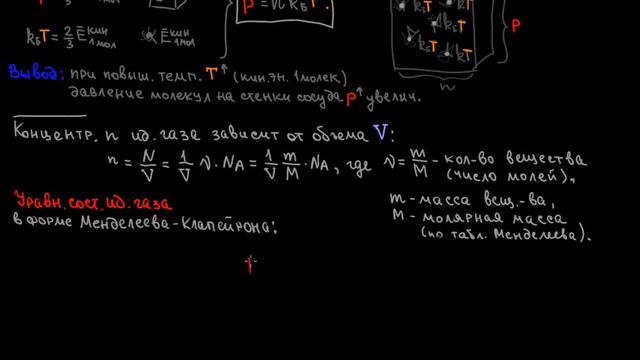 p = n k_Б T
k_Б T = 2/3 E̅ кин 1 мол
E̅ кин 1 мол
k_Б T
kT
k_Б T
kT
P
n
Вывод: при повыш. темп. T↑ (кин. эн. 1 молек)
давление молекул на стенки сосуда p↑ увелич.
Концентр. n ид. газа зависит от объема V:
n = N/V = 1/V ν · N_A = 1/V m/M · N_A, где ν = m/M - кол-во вещества
(число молей),
Уравн. сост. ид. газа
в форме Менделеева-Клапейрона:
m - масса вещ.-ва,
M - молярная масса
(по табл. Менделеева).